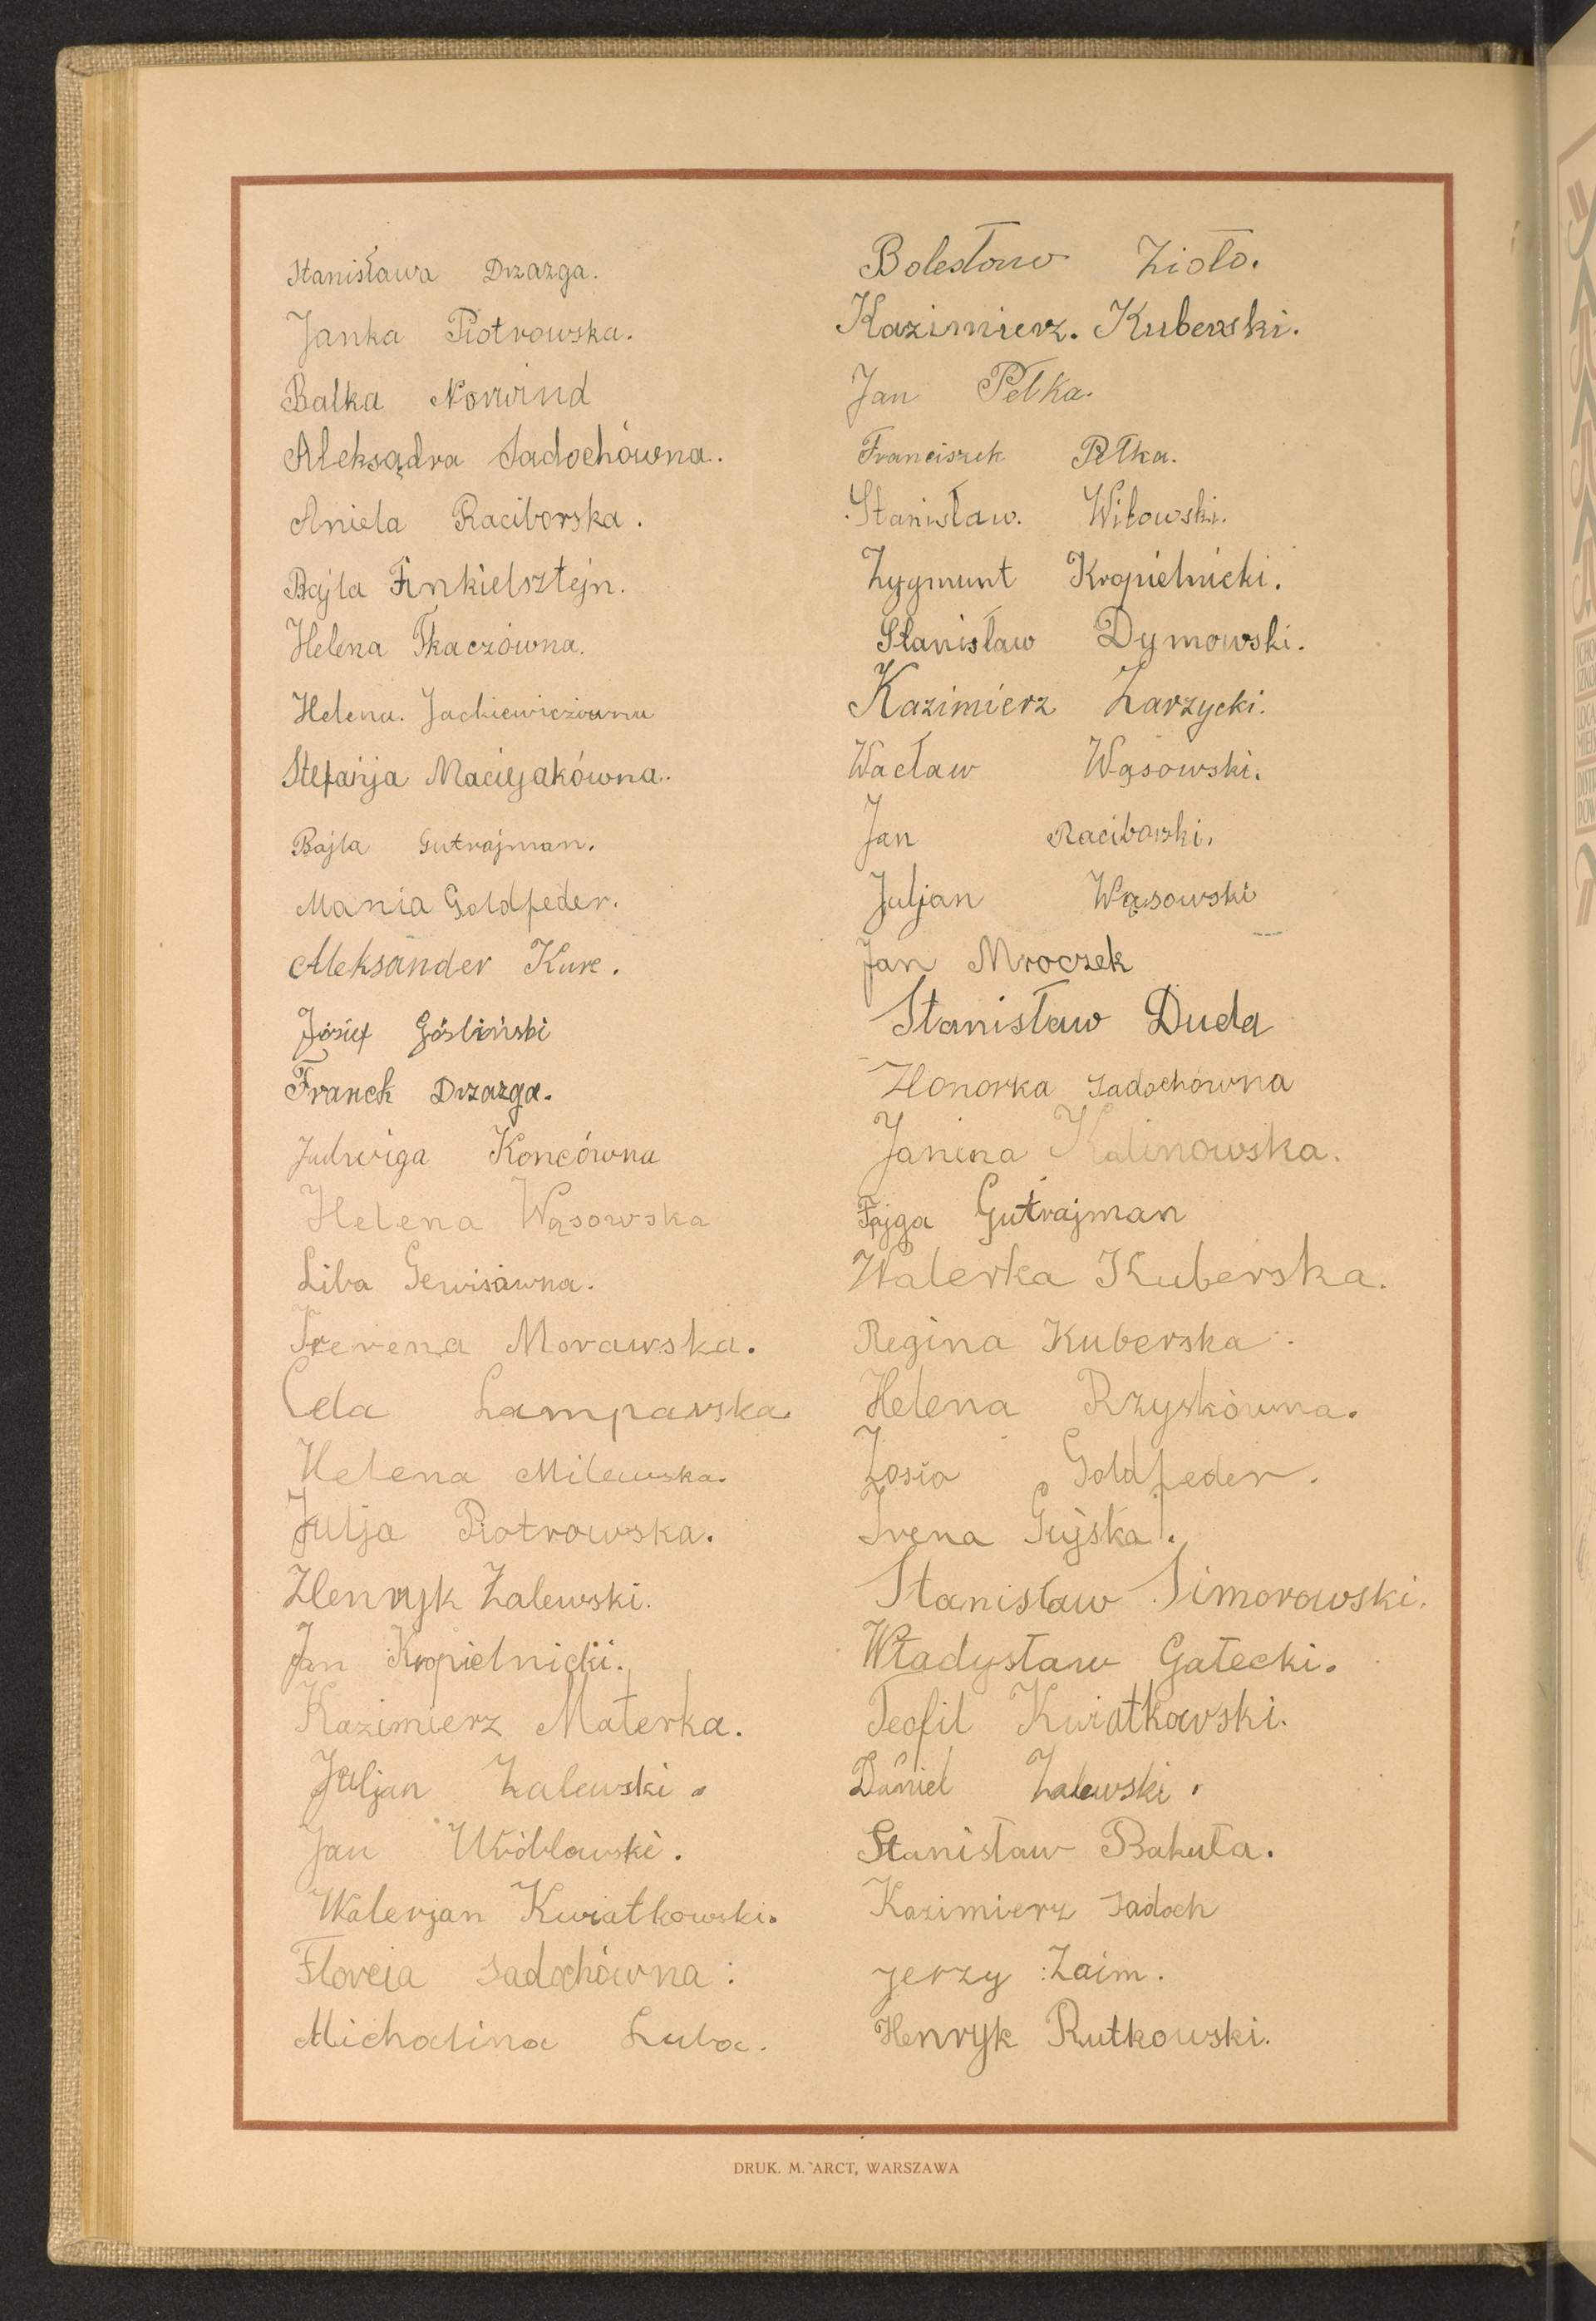 Stanisława Drzazga.
Janka Piotrowska.
Balka Norwind
Aleksądra Sadochówna.
Aniela Raciborska.
Bajla Finkielsztejn.
Helena Tkaczówna.
Helena. Jackiewiczówna
Stefańja Maciejakówna.
Bajla Gutrajman.
Mania Goldfeder.
Aleksander Kurc.
Józief Góśliński
Franek Drzazga.
Jadwiga Koncówna
Helena Wąsowska
Liba
Morawska.
Cela Lamparska.
Helena Milewska.
Julja Piotrowska.
Henryk Zalewski.
Jan Kropielnicki.
Kazimierz Materka.
Juljan Zalewski.
Jan Wróblowski.
Walerjan Kwiatkowski.
Florcia Sadochówna:
Michalina Luba.
Bolesłow Zioło.
Kazimierz. Kuberski.
Jan Pełka.
Franciszek Pełka.
Stanisław. Witowski.
Zygmunt Kropielnicki.
Stanisław Dymowski.
Kazimierz Zarzycki.
Wacław Wąsowski.
Jan Raciborski.
Juljan Wąsowski
Jan Mroczek
Stanisław Duda
Honorka Sadochówna
Janina Kalinowska.
Fajga Gutrajman
Walerka Kuberska.
Regina Kuberska.
Helena Rzyskówna.
Zosia Goldfeder.
Irena Gujska.
Stanisław Simorowski.
Władysław Gałecki.
Teofil Kwiatkowski.
Daniel Zalewski.
Stanisław Bakuła.
Kazimierz Sadoch
Jerzy Zaim.
Henryk Rutkowski.
DRUK. M. ARCT, WARSZAWA